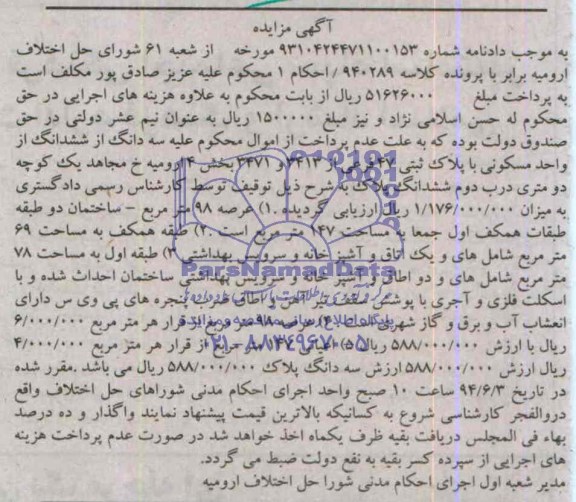 آگهی مزایده
به موجب دادنامه شماره ۹۳۱۰۴۲۴۴۷۱۱۰۰۱۵۳ مورخه از شعبه ۶۱ شورای حل اختلاف
ارومیه برابر با پرونده کلاسه ۹۴۰۲۸۹ / احکام ۱ محکوم علیه عزیز صادق پور مکلف است
به پرداخت مبلغ ۵۱۶۲۶۰۰۰ ریال از بابت محکوم به علاوه هزینه های اجرایی در حق
محکوم له حسن اسلامی نژاد و نیز مبلغ ۱۵۰۰۰۰۰ ریال به عنوان نیم عشر دولتی در حق
صندوق دولت بوده که به علت عدم پرداخت از اموال محکوم علیه سه دانگ از ششدانگ از
واحد مسکونی با پلاک ثبتی ۴۷ فرعی از ۳۴۱۳ و ۳۴۷۱ بخش ۴ ارومیه خ مجاهد یک کوچه
دو متری درب دوم ششدانگ پلاک به شرح ذیل توقیف توسط کارشناس رسمی دادگستری
به میزان ۱/۱۷۶/۰۰۰/۰۰۰ ریال ارزیابی گردیده ۱) عرصه ۹۸ متر مربع – ساختمان دو طبقه
طبقات همکف اول جمعا به مساحت ۱۴۷ متر مربع است ۲) طبقه همکف به مساحت ۶۹
متر مربع شامل های و یک اتاق و آشپز خانه و سرویس بهداشتی ۳) طبقه اول به مساحت ۷۸
متر مربع شامل های و دو اطاق و آشپز خانه و سرویس بهداشتی ساختمان احداث شده و با
اسکلت فلزی و آجری با پوشش سقف تیر آهن و پنجره های پی وی س دارای
انعشاب آب و برق و گاز شهری است ۴) عرصه ۹۸ متر مربع از قرار هر متر مربع ۶/۰۰۰/۰۰۰
ریال با ارزش ۵۸۸/۰۰۰/۰۰۰ ریال ۵) اعیانی ۱۴۷ متر مربع از قرار هر متر مربع ۴/۰۰۰/۰۰۰
ریال ارزش ۵۸۸/۰۰۰/۰۰۰ ارزش سه دانگ پلاک ۵۸۸/۰۰۰/۰۰۰ ریال می باشد .مقرر شده
در تاریخ ۹۴/۶/۳ ساعت ۱۰ صبح واحد اجرای احکام مدنی شوراهای حل اختلاف واقع
دروالفجر کارشناسی شروع به کسانیکه بالاترین قیمت پیشنهاد نمایند واگذار و ده درصد
بهاء فی المجلس دریافت بقیه ظرف یکماه اخذ خواهد شد در صورت عدم پرداخت هزینه
های اجرایی از سپرده کسر بقیه به نفع دولت ضبط می گردد.
مدیر شعبه اول اجرای احکام مدنی شورا حل اختلاف ارومیه
ParsNamadData
۰۲۱-۸۸۳۴۹۶۷۰-۵